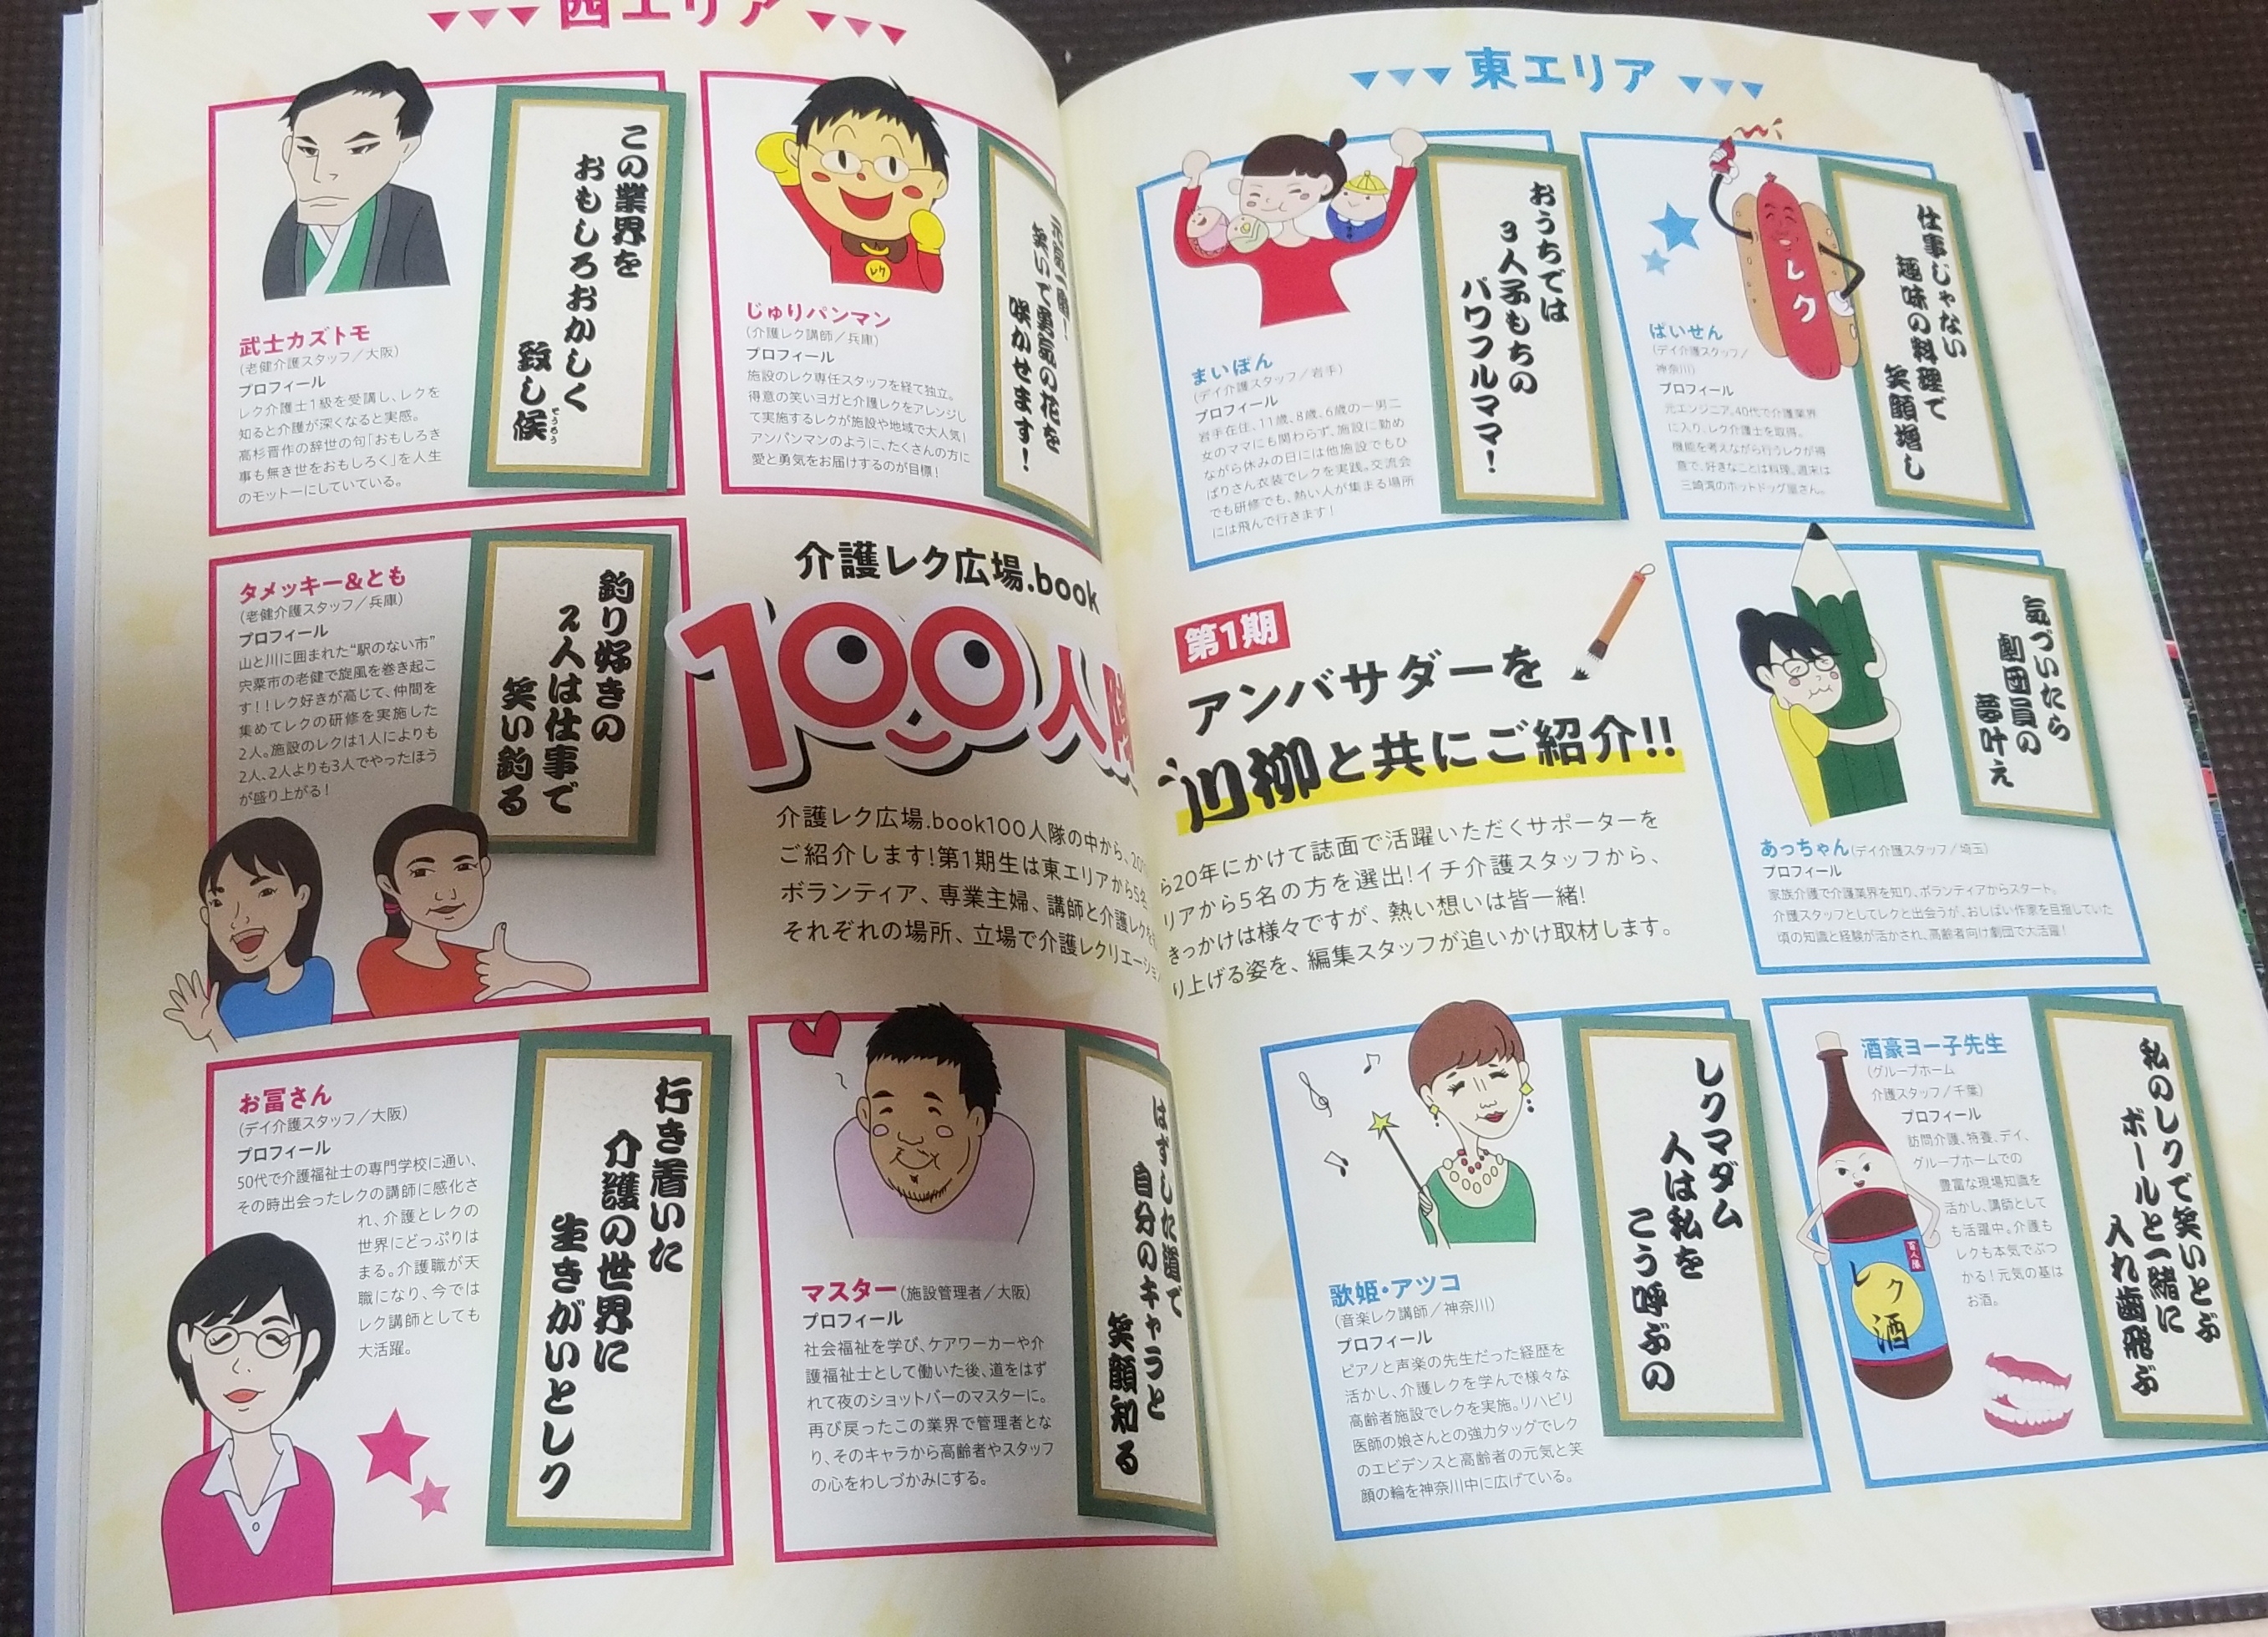 西エリア
武士カズトモ
(老健介護スタッフ/大阪)
プロフィール
レク介護士1級を受講し、レクを
知ると介護が深くなると実感。
高杉晋作の辞世の句「おもしろき
事も無き世をおもしろく」を人生
のモットーにしていている。
この業界を
おもしろおかしく
致し候
そうろう
じゅりパンマン
(介護レク講師/兵庫)
プロフィール
施設のレク専任スタッフを経て独立。
得意の笑いヨガと介護レクをアレンジし
て実施するレクが施設や地域で大人気!
アンパンマンのように、たくさんの方に
愛と勇気をお届けするのが目標!
笑いで勇気の花を
咲かせます!
レク
タメッキー&とも
(老健介護スタッフ/兵庫)
プロフィール
山と川に囲まれた“駅のない市”
宍粟市の老健で旋風を巻き起こ
す!!レク好きが高じて、仲間を
集めてレクの研修を実施した
2人。施設のレクは1人によりも
2人、2人よりも3人でやったほう
が盛り上がる!
釣り好きの
2人は仕事で
笑い釣る
介護レク広場.book
100人隊
介護レク広場.book100人隊の中から、20
ご紹介します!第1期生は東エリアから5名
ボランティア、専業主婦、講師と介護レクを
それぞれの場所、立場で介護レクリエーショ
お冨さん
(デイ介護スタッフ/大阪)
プロフィール
50代で介護福祉士の専門学校に通い、
その時出会ったレクの講師に感化さ
れ、介護とレクの
世界にどっぷりは
まる。介護職が天
職になり、今では
レク講師としても
大活躍。
行き着いた
介護の世界に
生きがいとレク
マスター(施設管理者/大阪)
プロフィール
社会福祉を学び、ケアワーカーや介
護福祉士として働いた後、道をはず
れて夜のショットバーのマスターに。
再び戻ったこの業界で管理者とな
り、そのキャラから高齢者やスタッフ
の心をわしづかみにする。
はずした道で
自分のキャラと
笑顔知る
東エリア
まいぽん
(デイ介護スタッフ/岩手)
プロフィール
岩手在住、11歳、8歳、6歳の一男二
女のママにも関わらず、施設に勤め
ながら休みの日には他施設でもひ
ばりさん衣装でレクを実践。交流会
でも研修でも、熱い人が集まる場所
には飛んで行きます!
おうちでは
3人子もちの
パワフルママ!
ぱいせん
(デイ介護スタッフ/
神奈川)
プロフィール
元エンジニア。40代で介護業界
に入り、レク介護士を取得。
機能を考えながら行うレクが得
意で、好きなことは料理。週末は
三崎湾のホットドッグ屋さん。
仕事じゃない
趣味の料理で
笑顔増し
レク
第1期
アンバサダーを
川柳と共にご紹介!!
ら20年にかけて誌面で活躍いただくサポーターを
リアから5名の方を選出!イチ介護スタッフから、
きっかけは様々ですが、熱い想いは皆一緒!
り上げる姿を、編集スタッフが追いかけ取材します。
あっちゃん(デイ介護スタッフ/埼玉)
プロフィール
家族介護で介護業界を知り、ボランティアからスタート。
介護スタッフとしてレクと出会うが、おしばい作家を目指していた
頃の知識と経験が活かされ、高齢者向け劇団で大活躍!
気づいたら
劇団員の
夢叶え
歌姫・アツコ
(音楽レク講師/神奈川)
プロフィール
ピアノと声楽の先生だった経歴を
活かし、介護レクを学んで様々な
高齢者施設でレクを実施。リハビリ
医師の娘さんとの強力タッグでレク
のエビデンスと高齢者の元気と笑
顔の輪を神奈川中に広げている。
レクマダム
人は私を
こう呼ぶの
酒豪ヨー子先生
(グループホーム
介護スタッフ/千葉)
プロフィール
訪問介護、特養、デイ、
グループホームでの
豊富な現場知識を
活かし、講師として
も活躍中。介護も
レクも本気でぶつ
かる!元気の基は
お酒。
私のレクで笑いとぶ
ボールと一緒に
入れ歯飛ぶ
百人隊
レク酒